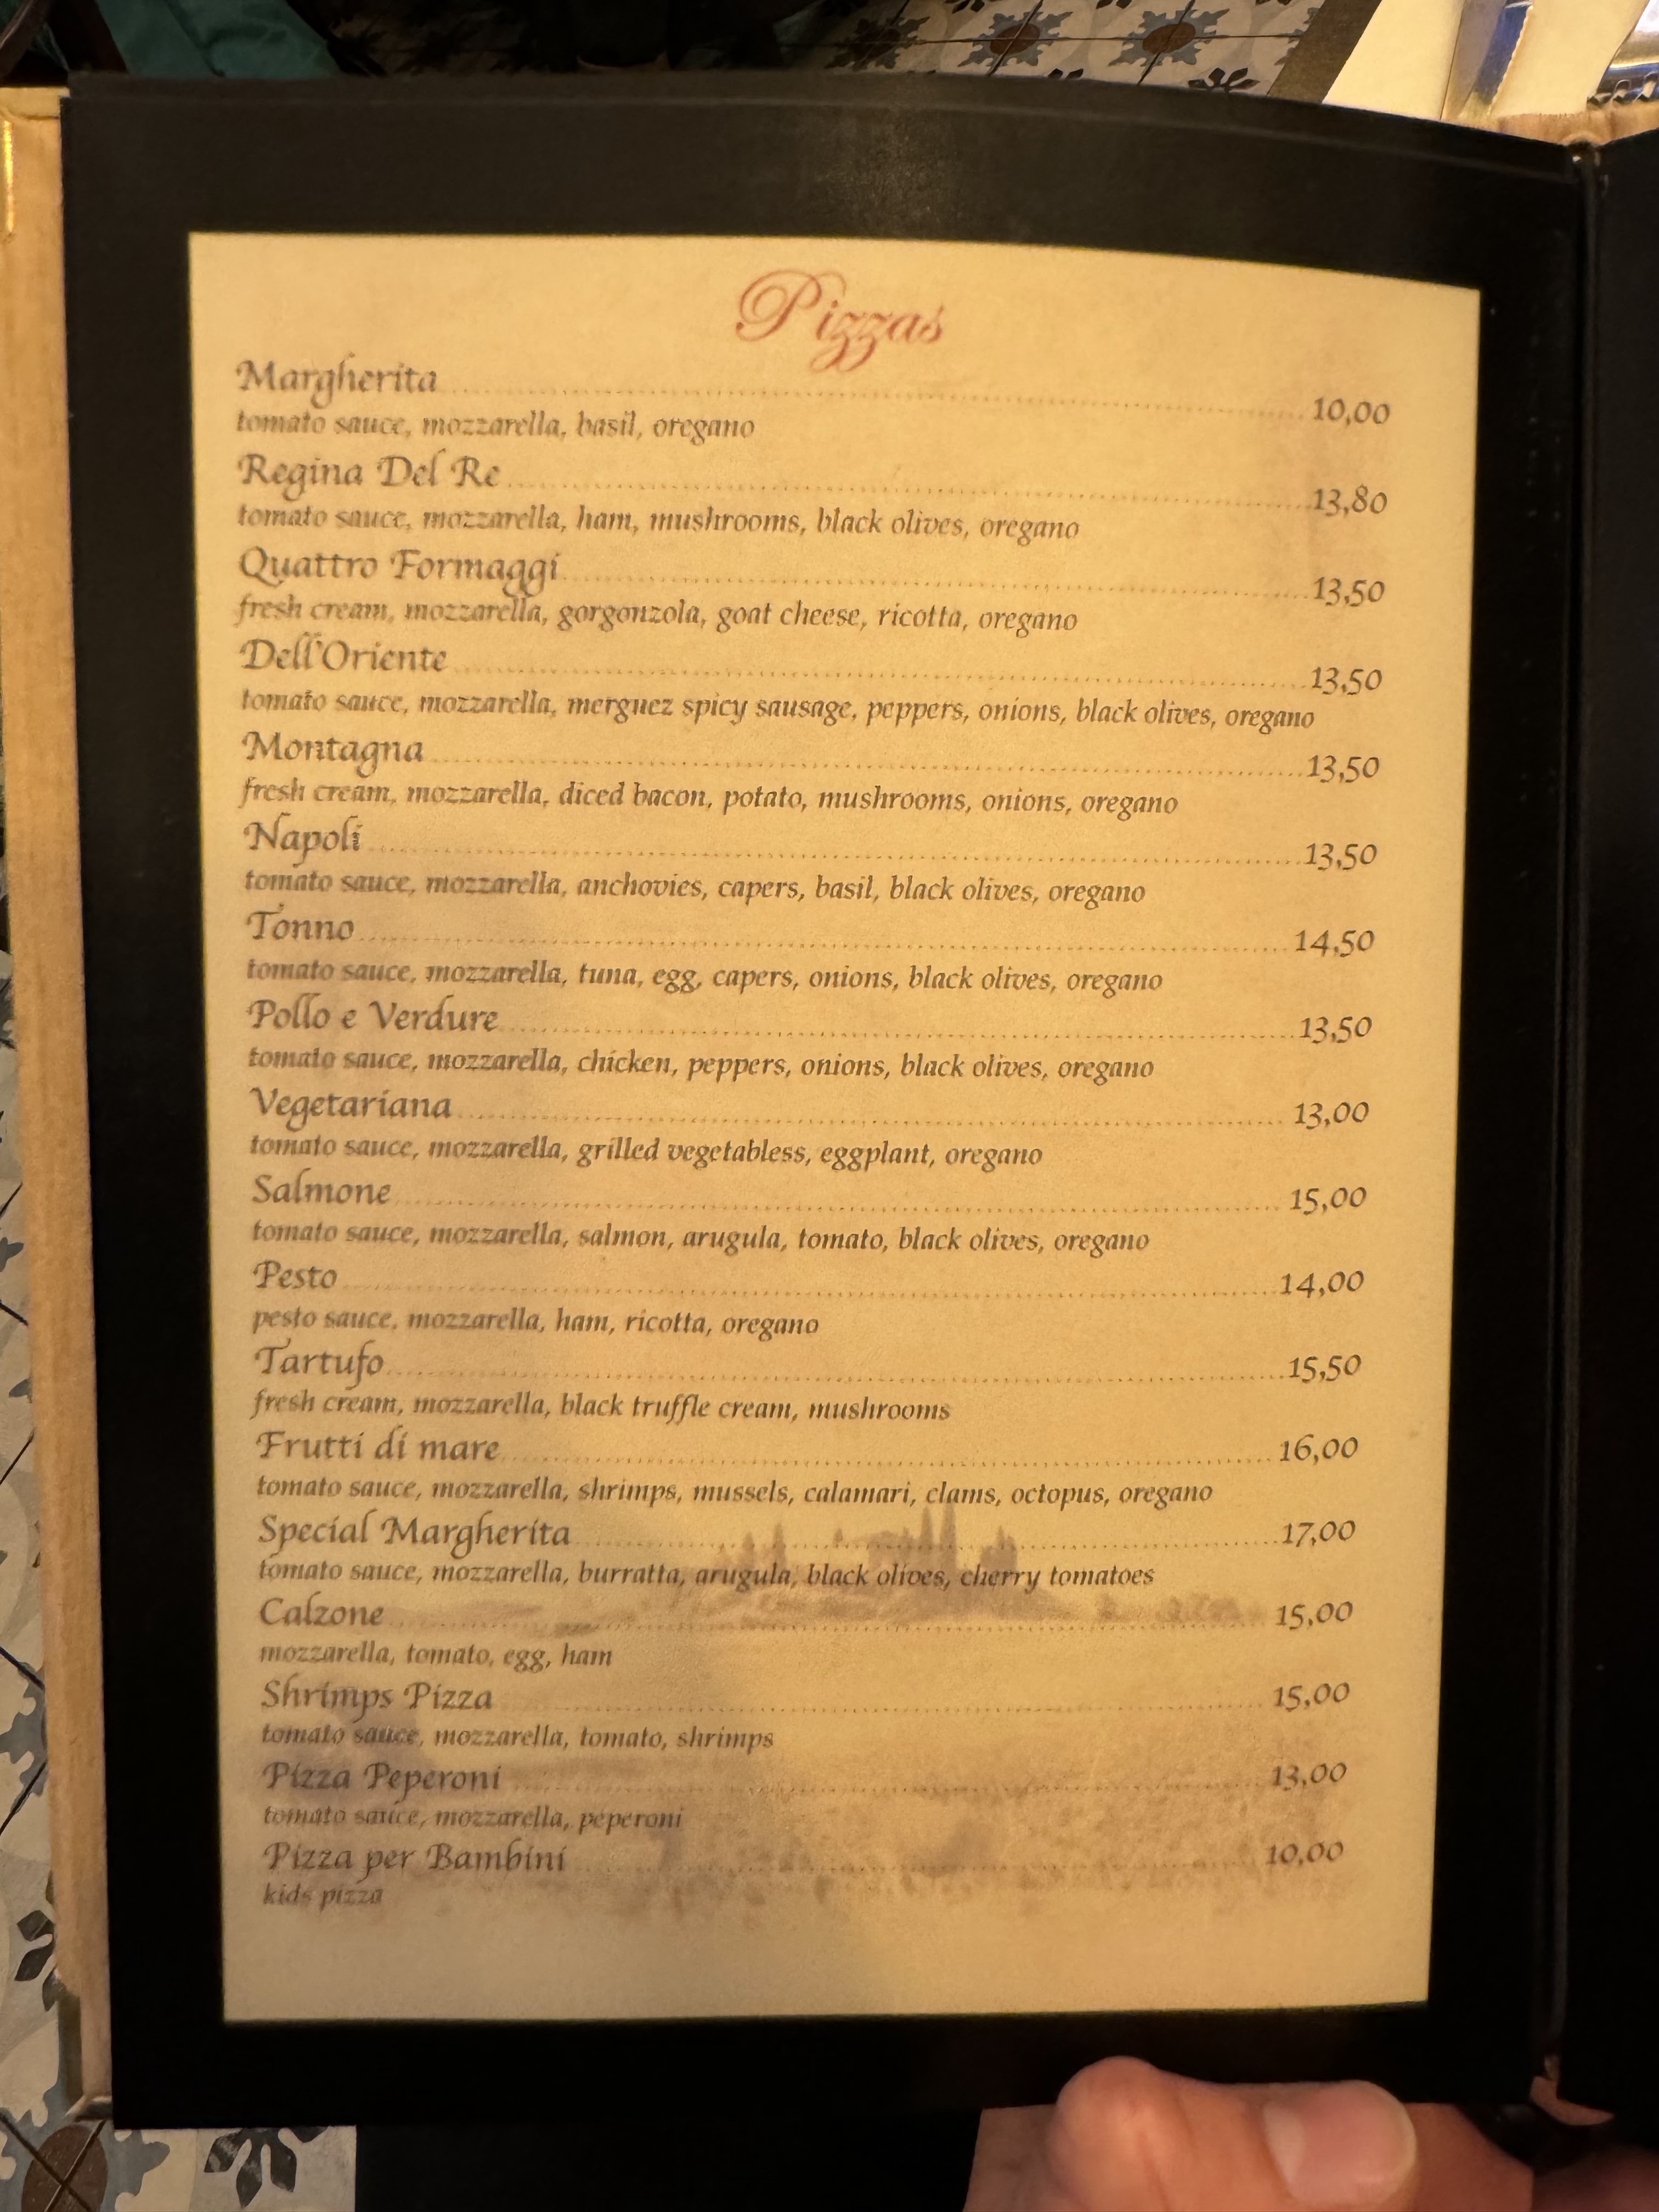 Pizzas
Margherita 10,00
tomato sauce, mozzarella, basil, oregano
Regina Del Re 13,80
tomato sauce, mozzarella, ham, mushrooms, black olives, oregano
Quattro Formaggi 13,50
fresh cream, mozzarella, gorgonzola, goat cheese, ricotta, oregano
Dell'Oriente 13,50
tomato sauce, mozzarella, merguez spicy sausage, peppers, onions, black olives, oregano
Montagna 13,50
fresh cream, mozzarella, diced bacon, potato, mushrooms, onions, oregano
Napoli 13,50
tomato sauce, mozzarella, anchovies, capers, basil, black olives, oregano
Tonno 14,50
tomato sauce, mozzarella, tuna, egg, capers, onions, black olives, oregano
Pollo e Verdure 13,50
tomato sauce, mozzarella, chicken, peppers, onions, black olives, oregano
Vegetariana 13,00
tomato sauce, mozzarella, grilled vegetabless, eggplant, oregano
Salmone 15,00
tomato sauce, mozzarella, salmon, arugula, tomato, black olives, oregano
Pesto 14,00
pesto sauce, mozzarella, ham, ricotta, oregano
Tartufo 15,50
fresh cream, mozzarella, black truffle cream, mushrooms
Frutti di mare 16,00
tomato sauce, mozzarella, shrimps, mussels, calamari, clams, octopus, oregano
Special Margherita 17,00
tomato sauce, mozzarella, burratta, arugula, black olives, cherry tomatoes
Calzone 15,00
mozzarella, tomato, egg, ham
Shrimps Pizza 15,00
tomato sauce, mozzarella, tomato, shrimps
Pizza Peperoni 13,00
tomato sauce, mozzarella, peperoni
Pizza per Bambini 10,00
kids pizza